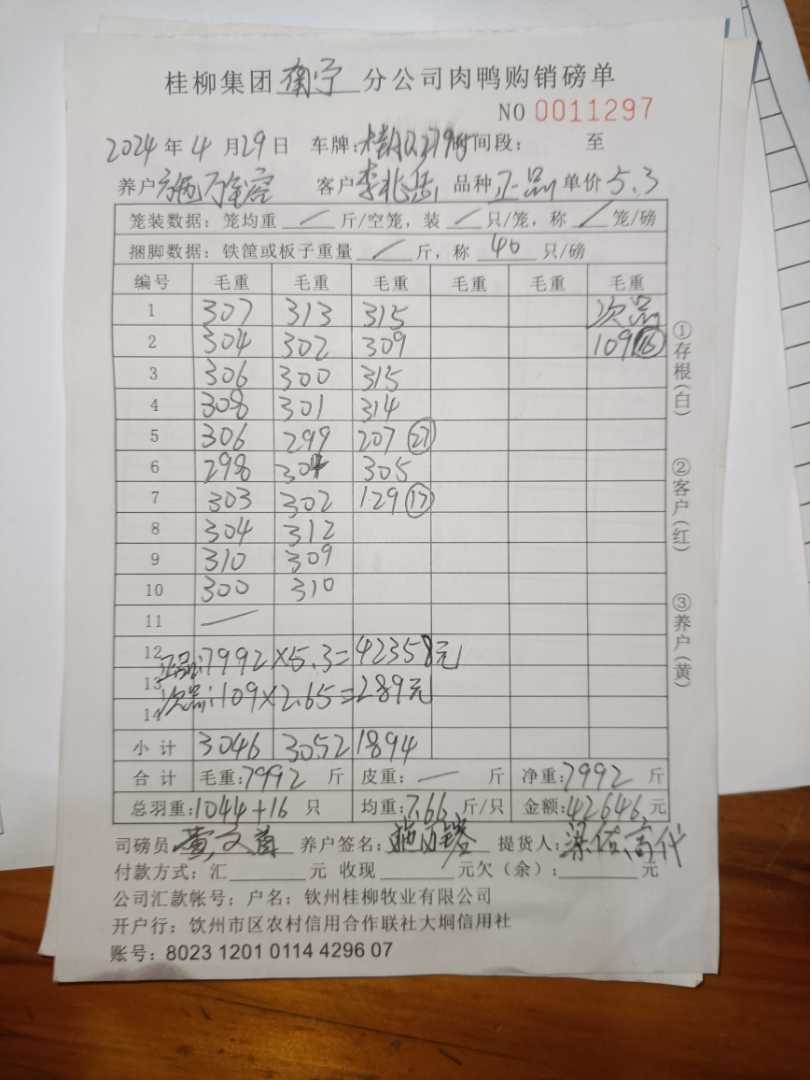 桂柳集团 南宁 分公司肉鸭购销磅单
NO 0011297
2024 年 4 月 29 日 车牌: 时间段: 至
养户 客户 李北岳 品种 正品 单价 5.3
笼装数据: 笼均重 / 斤/空笼, 装 / 只/笼, 称 / 笼/磅
捆脚数据: 铁筐或板子重量 / 斤, 称 40 只/磅
编号 毛重 毛重 毛重 毛重 毛重 毛重
1 307 313 315 次品
2 304 302 309 109 (16)
3 306 300 315
4 308 301 314
5 306 299 207 (27)
6 298 304 305
7 303 302 129 (17)
8 304 312
9 310 309
10 300 310
11 —
12 正品:7992×5.3=42358元
13 次品:109×2.65=289元
14
小计 3046 3052 1894
合计 毛重:7992 斤 皮重: — 斤 净重:7992 斤
总羽重:1044+16 只 均重:7.66 斤/只 金额:42646 元
司磅员 养户签名: 提货人:
付款方式: 汇 元 收现 元欠(余): 元
公司汇款帐号: 户名: 钦州桂柳牧业有限公司
开户行: 饮州市区农村信用合作联社大垌信用社
账号: 8023 1201 0114 4296 07
①存根(白)
②客户(红)
③养户(黄)